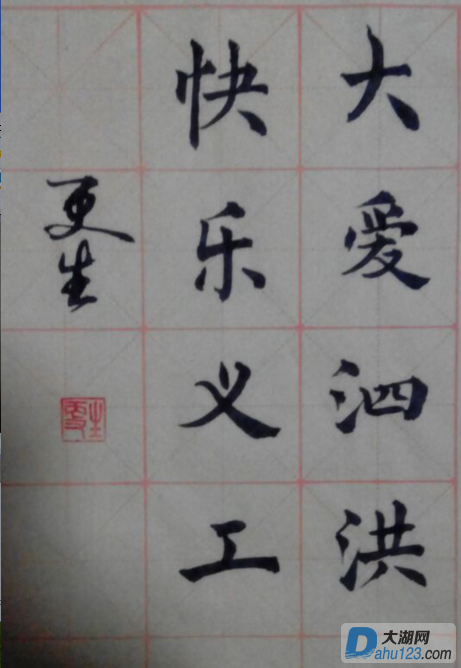 大爱泗洪
快乐义工
更生
更生
大湖网
Dahu123.com